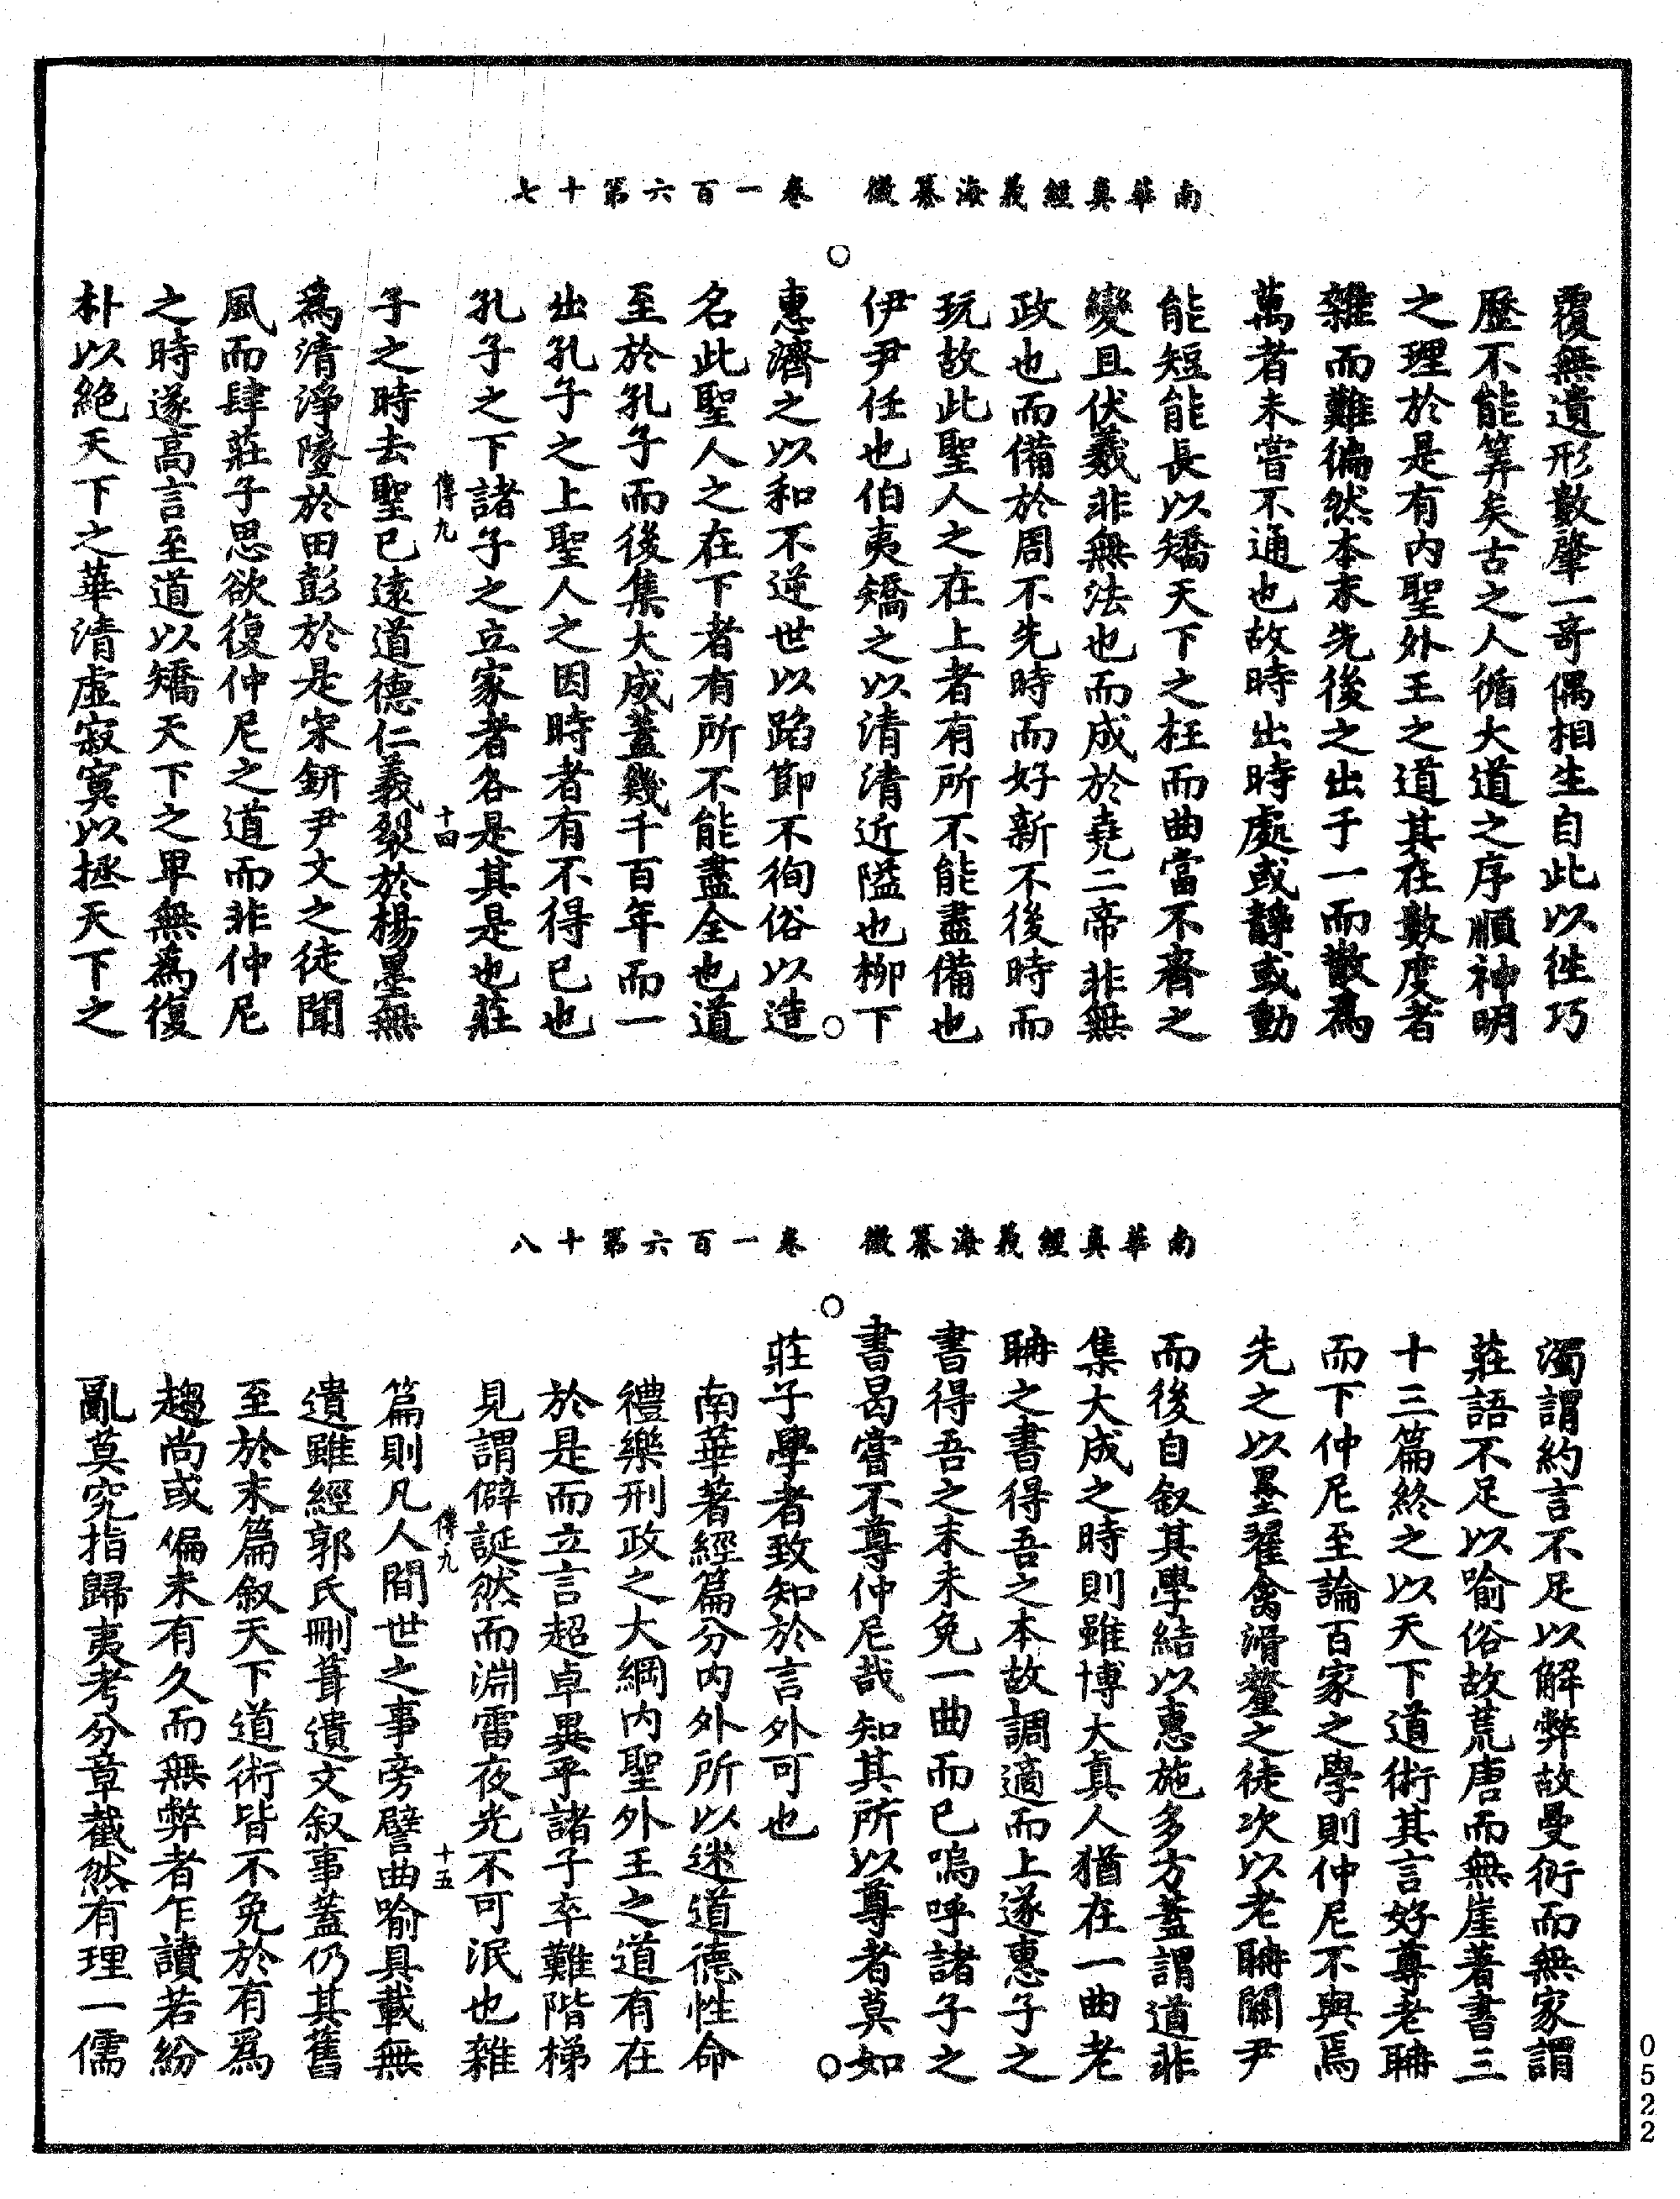 南華真經義海纂微　卷一百六第十七
覆無遺形數肇一奇偶相生自此以往巧
歷不能筭矣古之人循大道之序順神明
之理於是有內聖外王之道其在數度者
雜而難徧然本末先後之出于一而散爲
萬者未嘗不通也故時出時處或靜或動
能短能長以矯天下之枉而曲當不齊之
變且伏羲非無法也而成於堯二帝非無
政也而備於周不先時而好新不後時而
玩故此聖人之在上者有所不能盡備也
伊尹任也伯夷矯之以清清近隘也柳下
惠濟之以和不逆世以蹈節不徇俗以造
名此聖人之在下者有所不能盡全也道
至於孔子而後集大成蓋幾千百年而一
出孔子之上聖人之因時者有不得已也
孔子之下諸子之立家者各是其是也莊
傳九　十四
子之時去聖已遠道德仁義裂於楊墨無
爲清淨墜於田彭於是宋鈃尹文之徒聞
風而肆莊子思欲復仲尼之道而非仲尼
之時遂高言至道以矯天下之卑無爲復
朴以絕天下之華清虛寂寞以拯天下之
南華真經義海纂微　卷一百六第十八
濁謂約言不足以解弊故曼衍而無家謂
莊語不足以喻俗故荒唐而無崖著書三
十三篇終之以天下道術其言好尊老聃
而下仲尼至論百家之學則仲尼不與焉
先之以墨翟禽滑釐之徒次以老聃關尹
而後自叙其學結以惠施多方蓋謂道非
集大成之時則雖博大真人猶在一曲老
聃之書得吾之本故調適而上遂惠子之
書得吾之末未免一曲而已嗚呼諸子之
書曷嘗不尊仲尼哉知其所以尊者莫如
莊子學者致知於言外可也
南華著經篇分内外所以述道德性命
禮樂刑政之大綱内聖外王之道有在
於是而立言超卓異乎諸子卒難階梯
見謂僻誕然而淵雷夜光不可泯也雜
傳九　十五
篇則凡人間世之事旁譬曲喻具載無
遺雖經郭氏刪葺遺文叙事蓋仍其舊
至於末篇叙天下道術皆不免於有爲
趨尚或偏未有久而無弊者乍讀若紛
亂莫究指歸夷考分章截然有理一儒
0522